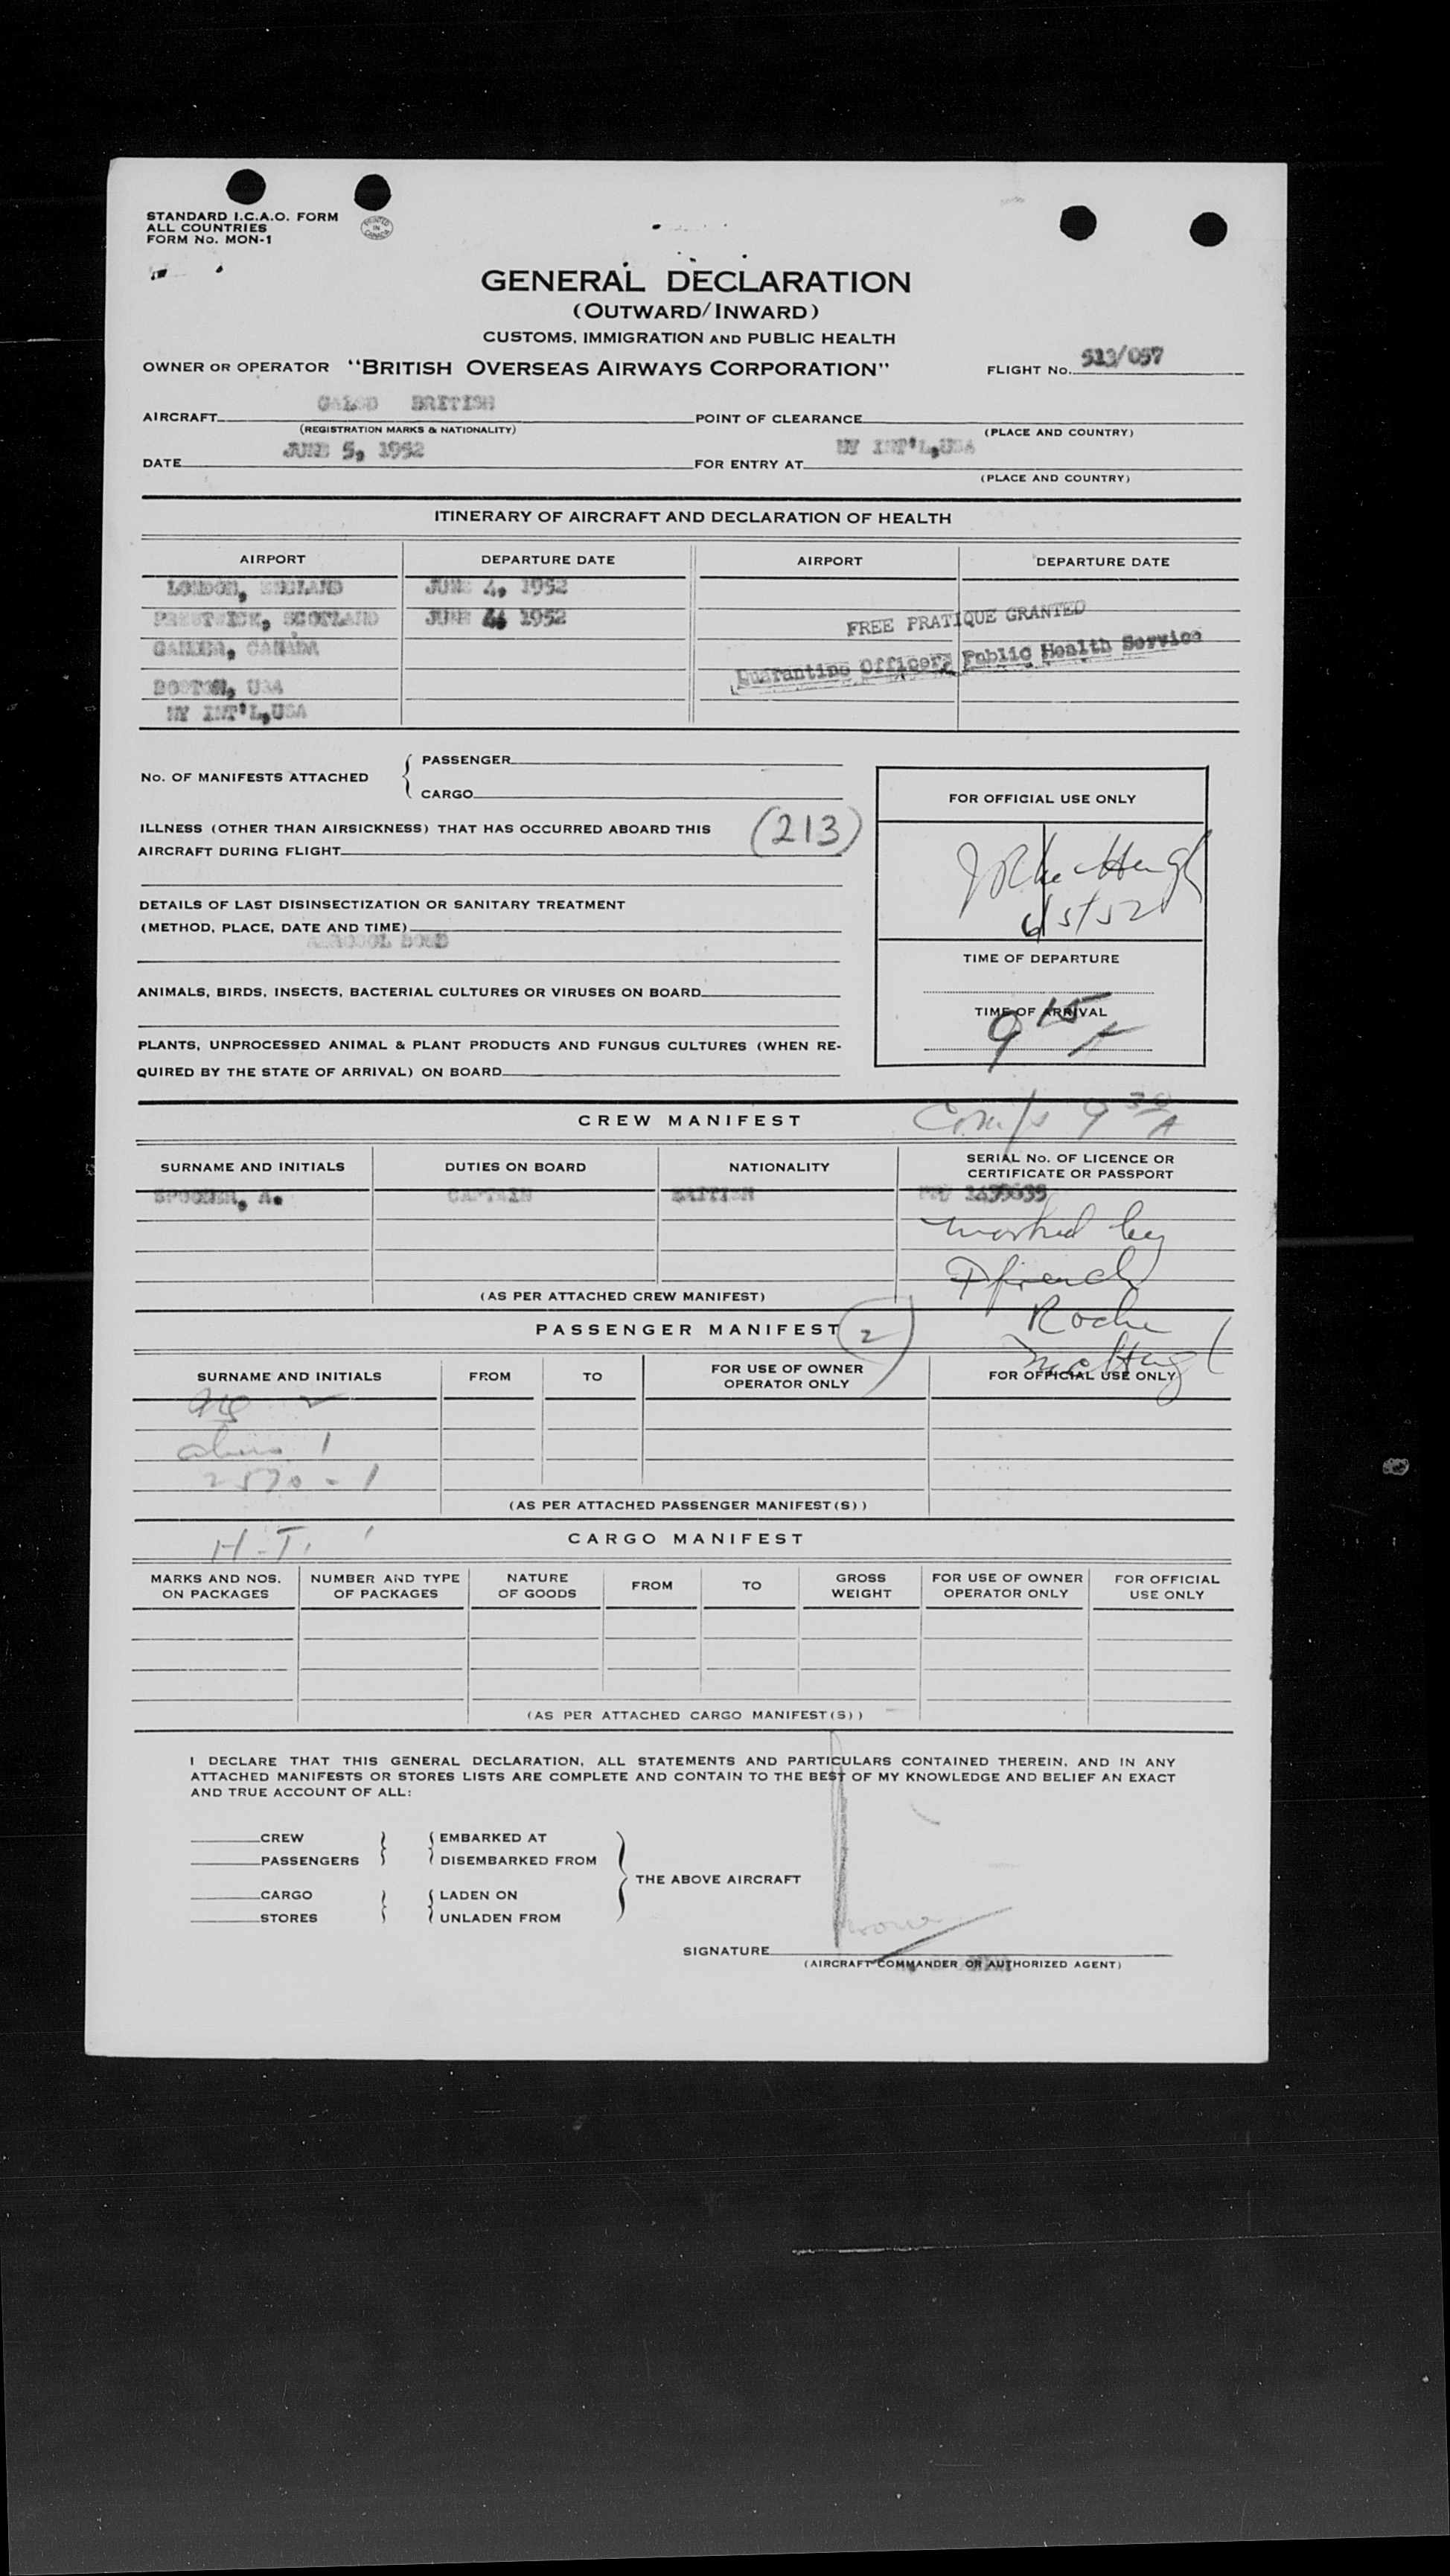 STANDARD I.C.A.O. FORM
ALL COUNTRIES
FORM No. MON-1
PRINTED IN CANADA
GENERAL DECLARATION
(OUTWARD/INWARD)
CUSTOMS, IMMIGRATION AND PUBLIC HEALTH
OWNER OR OPERATOR "BRITISH OVERSEAS AIRWAYS CORPORATION" FLIGHT No. 513/057
AIRCRAFT GALSD BRITISH POINT OF CLEARANCE
(REGISTRATION MARKS & NATIONALITY) (PLACE AND COUNTRY)
DATE JUNE 5, 1952 FOR ENTRY AT NY INT'L,USA
(PLACE AND COUNTRY)
ITINERARY OF AIRCRAFT AND DECLARATION OF HEALTH
AIRPORT DEPARTURE DATE AIRPORT DEPARTURE DATE
LONDON, ENGLAND JUNE 4, 1952
PRESTWICK, SCOTLAND JUNE 4, 1952
FREE PRATIQUE GRANTED
GANDER, CANADA
Quarantine Officer, Public Health Service
BOSTON, USA
NY INT'L,USA
No. OF MANIFESTS ATTACHED { PASSENGER
CARGO
FOR OFFICIAL USE ONLY
ILLNESS (OTHER THAN AIRSICKNESS) THAT HAS OCCURRED ABOARD THIS
AIRCRAFT DURING FLIGHT (213)
6/5/52
DETAILS OF LAST DISINSECTIZATION OR SANITARY TREATMENT
(METHOD, PLACE, DATE AND TIME)
AEROSOL BOMB
TIME OF DEPARTURE
ANIMALS, BIRDS, INSECTS, BACTERIAL CULTURES OR VIRUSES ON BOARD
TIME OF ARRIVAL
9 15 A
PLANTS, UNPROCESSED ANIMAL & PLANT PRODUCTS AND FUNGUS CULTURES (WHEN RE-
QUIRED BY THE STATE OF ARRIVAL) ON BOARD
CREW MANIFEST
9 30 A
SURNAME AND INITIALS DUTIES ON BOARD NATIONALITY SERIAL No. OF LICENCE OR
CERTIFICATE OR PASSPORT
SPOONER, A. CAPTAIN BRITISH 1439635
worked by
Roche
(AS PER ATTACHED CREW MANIFEST)
PASSENGER MANIFEST 2
SURNAME AND INITIALS FROM TO FOR USE OF OWNER
OPERATOR ONLY FOR OFFICIAL USE ONLY
2570 - 1
(AS PER ATTACHED PASSENGER MANIFEST(S))
H.T. 1
CARGO MANIFEST
MARKS AND NOS.
ON PACKAGES NUMBER AND TYPE
OF PACKAGES NATURE
OF GOODS FROM TO GROSS
WEIGHT FOR USE OF OWNER
OPERATOR ONLY FOR OFFICIAL
USE ONLY
(AS PER ATTACHED CARGO MANIFEST(S))
I DECLARE THAT THIS GENERAL DECLARATION, ALL STATEMENTS AND PARTICULARS CONTAINED THEREIN, AND IN ANY
ATTACHED MANIFESTS OR STORES LISTS ARE COMPLETE AND CONTAIN TO THE BEST OF MY KNOWLEDGE AND BELIEF AN EXACT
AND TRUE ACCOUNT OF ALL:
CREW EMBARKED AT
PASSENGERS DISEMBARKED FROM
THE ABOVE AIRCRAFT
CARGO LADEN ON
STORES UNLADEN FROM
SIGNATURE
(AIRCRAFT COMMANDER OR AUTHORIZED AGENT)